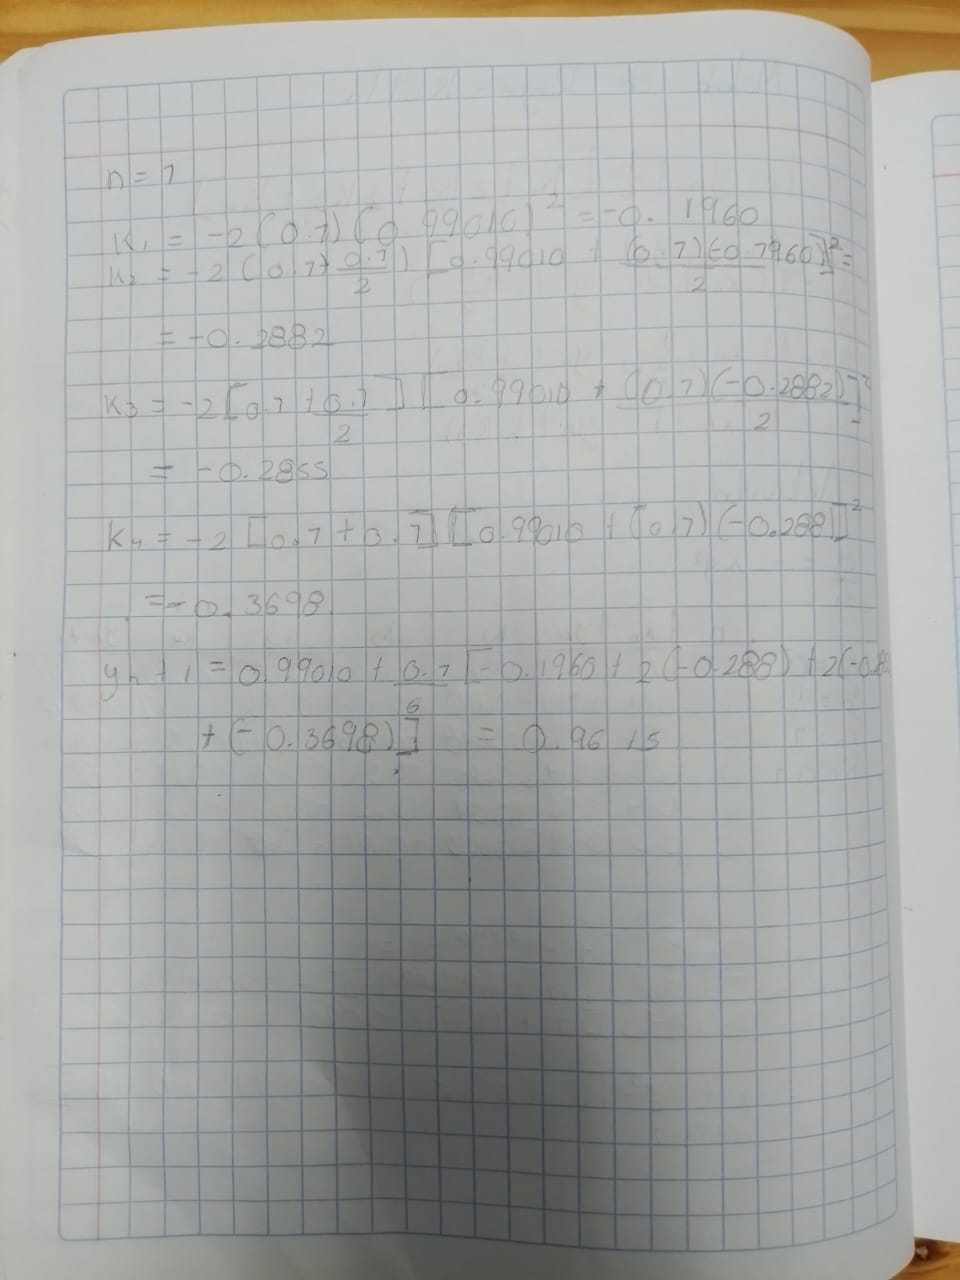 n = 1
K₁ = -2 (0.1) (0.99010)² = -0.1960
K₂ = -2 (0.1 + 0.1/2) [0.99010 + (0.1)(-0.1960)/2]² =
= -0.2882
K₃ = -2 [0.1 + 0.1/2] [0.99010 + (0.1)(-0.2882)/2]²
= -0.2855
K₄ = -2 [0.1 + 0.1] [0.99010 + (0.1) (-0.288)]²
= -0.3698
yₙ + 1 = 0.99010 + 0.1/6 [-0.1960 + 2(-0.288) + 2(-0.
+ (-0.3698)] = 0.9615